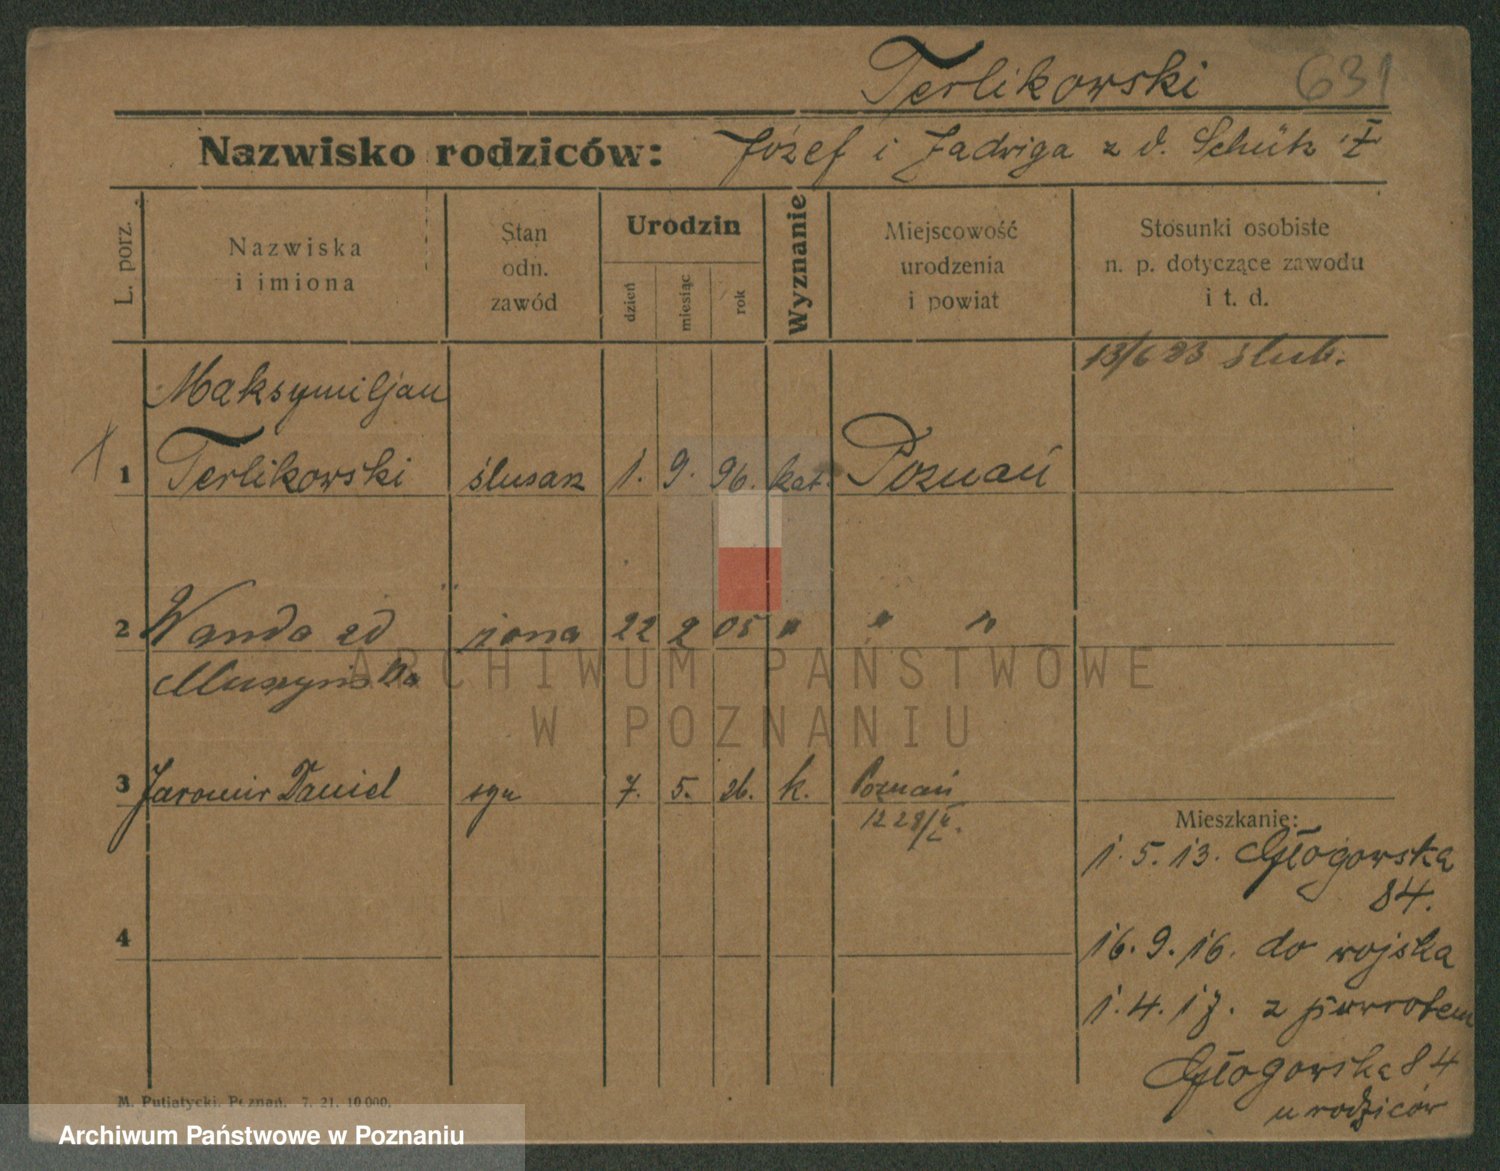 Terlikowski 631
Nazwisko rodziców: Józef i Jadwiga z d. Schütz
L. porz.
Nazwiska
i imiona
Stan
odn.
zawód
Urodzin
dzień
miesiąc
rok
Wyznanie
Miejscowość
urodzenia
i powiat
Stosunki osobiste
n. p. dotyczące zawodu
i t. d.
13/6 23 ślub.
Maksymiljan
1 Terlikowski ślusarz 1. 9. 96. kat. Poznań
2 Wanda zd żona 22 2 05 " " "
Muszyńska
3 Jaromir Daniel syn 7. 5. 26. k. Poznań
12 28/
Mieszkanie:
1. 5. 13. Głogowska
84.
4
16. 9. 16. do wojska
1. 4. 17. z powrotem
Głogowska 84
u rodziców
M. Putiatycki. Poznań. 7. 21. 10 000.
ARCHIWUM PAŃSTWOWE
W POZNANIU
Archiwum Państwowe w Poznaniu